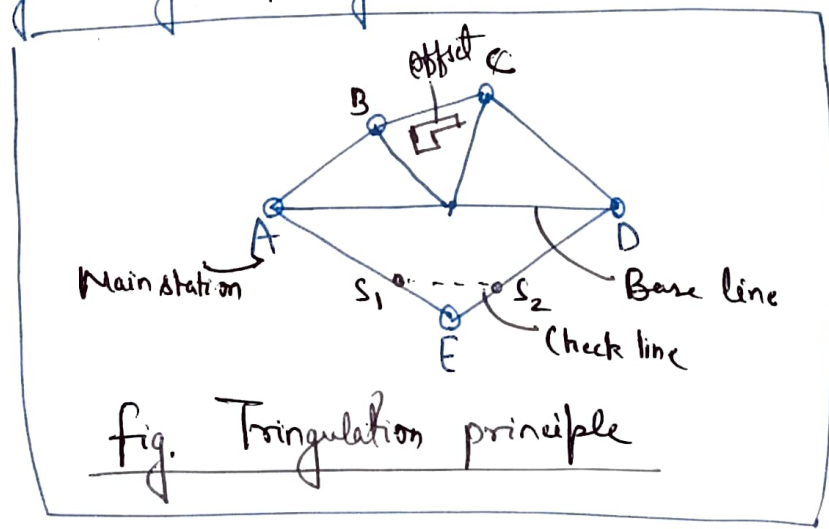 offset
C
B
A
D
Main station
S1
S2
Base line
E
Check line
fig. Tringulation principle